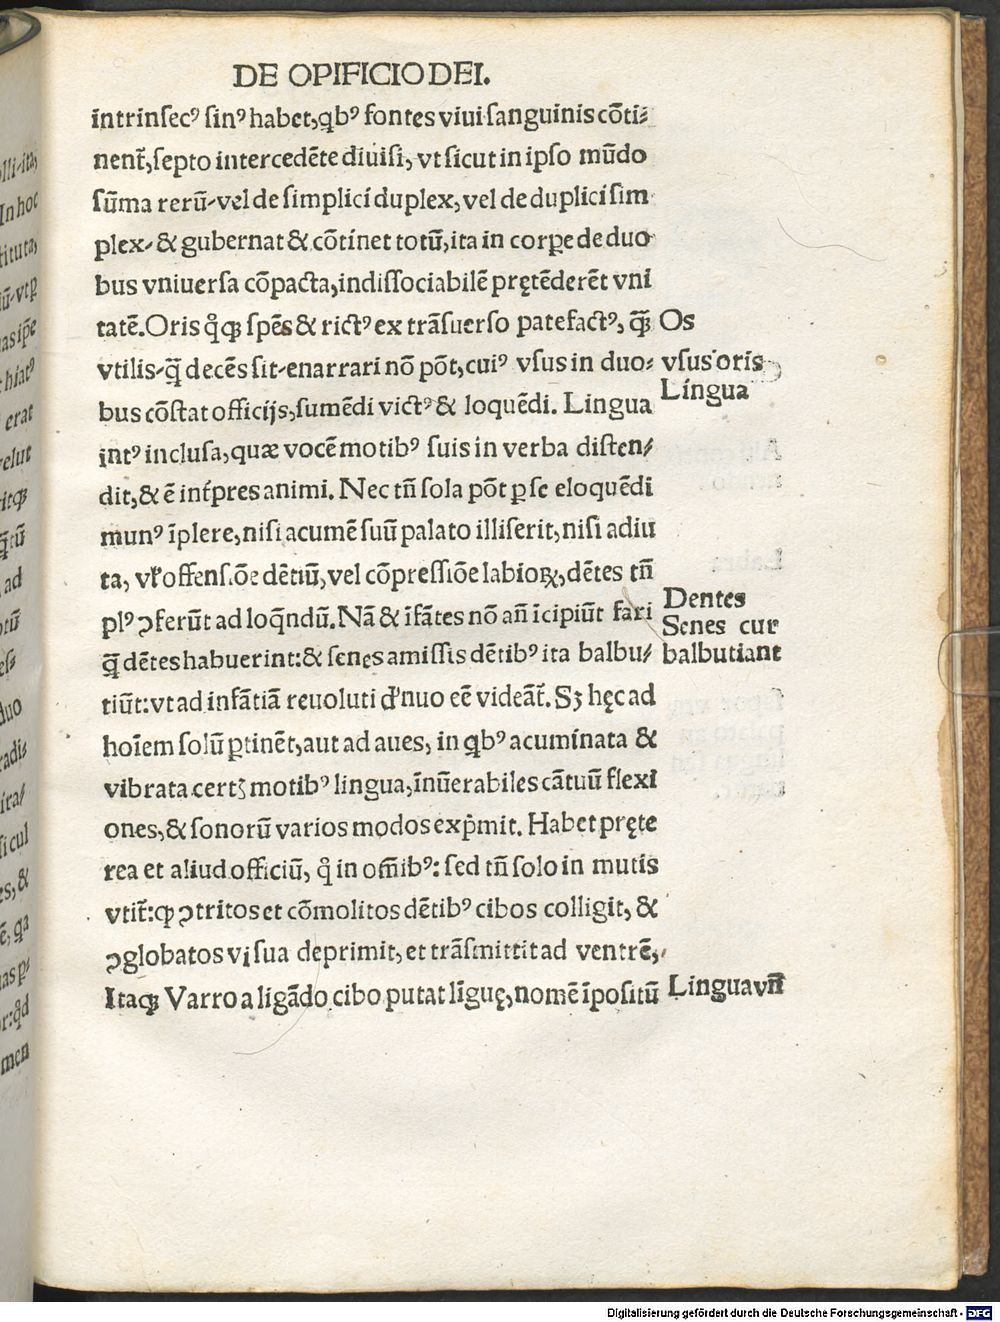 DE OPIFICIO DEI.
īntrinſecꝰ ſinꝰ habet, qbꝰ fontes viui ſanguinis cōti⸗
nent̄, ſepto intercedēte diuiſi, vt ſicut in ipſo mūdo
ſūma rerū⸗vel de ſimplici duplex, vel de duplici ſim
plex⸗& gubernat & cōtinet totū, ita in corꝑe de duo
bus vniuerſa cōpacta, indiſſociabilē prętēderēt vni
tatē. Oris qͦꝙ ſpēs & rictꝰ ex trāſuerſo patefactꝰ, ꝙ̄
Os
vtilis⸗q̄ decēs ſit⸗enarrari nō pōt, cuiꝰ vſus in duo⸗
vſus oris
bus cōſtat officijs, ſumēdi victꝰ & loquēdi. Lingua
Língua
intꝰ incluſa, quæ vocē motibꝰ ſuis in verba diſten⸗
dit, & ē int̄pres animi. Nec tn̄ ſola pōt ꝑ ſe eloquēdi
munꝰ īplere, niſi acumē ſuū palato illiſerit, niſi adiu
ta, vł offenſiōe dētiū, vel cōpreſſiōe labioꝝ, dētes tn̄
plꝰ ↄferūt ad loq̄ndū. Nā & īfātes nō an̄ īcipiūt fari
Dentes
Senes cur
q̄ dētes habuerint: & ſenes amiſſis dētibꝰ ita balbu⸗
balbutiant
tiūt: vt ad infātiā reuoluti d'nuo eē videāt̄. Sꝫ hęc ad
hoīem ſolū ꝑtinēt, aut ad aues, in qbꝰ acuminata &
vibrata certꝫ motibꝰ lingua, īnūerabiles cātuū flexi
ones, & ſonorū varios modos exp̄mit. Habet pręte
rea et aliud officiū, qͦ in om̄ibꝰ: ſed tn̄ ſolo in mutis
vtit̄: ꝙ ↄtritos et cōmolitos dētibꝰ cibos colligit, &
ↄglobatos vi ſua deprimit, et trāſmittit ad ventrē,
Itaꝙ Varro a ligādo cibo putat līguę, nomē īpoſitū
Lingua vn̄
Digitalisierung gefördert durch die Deutsche Forschungsgemeinschaft - DFG